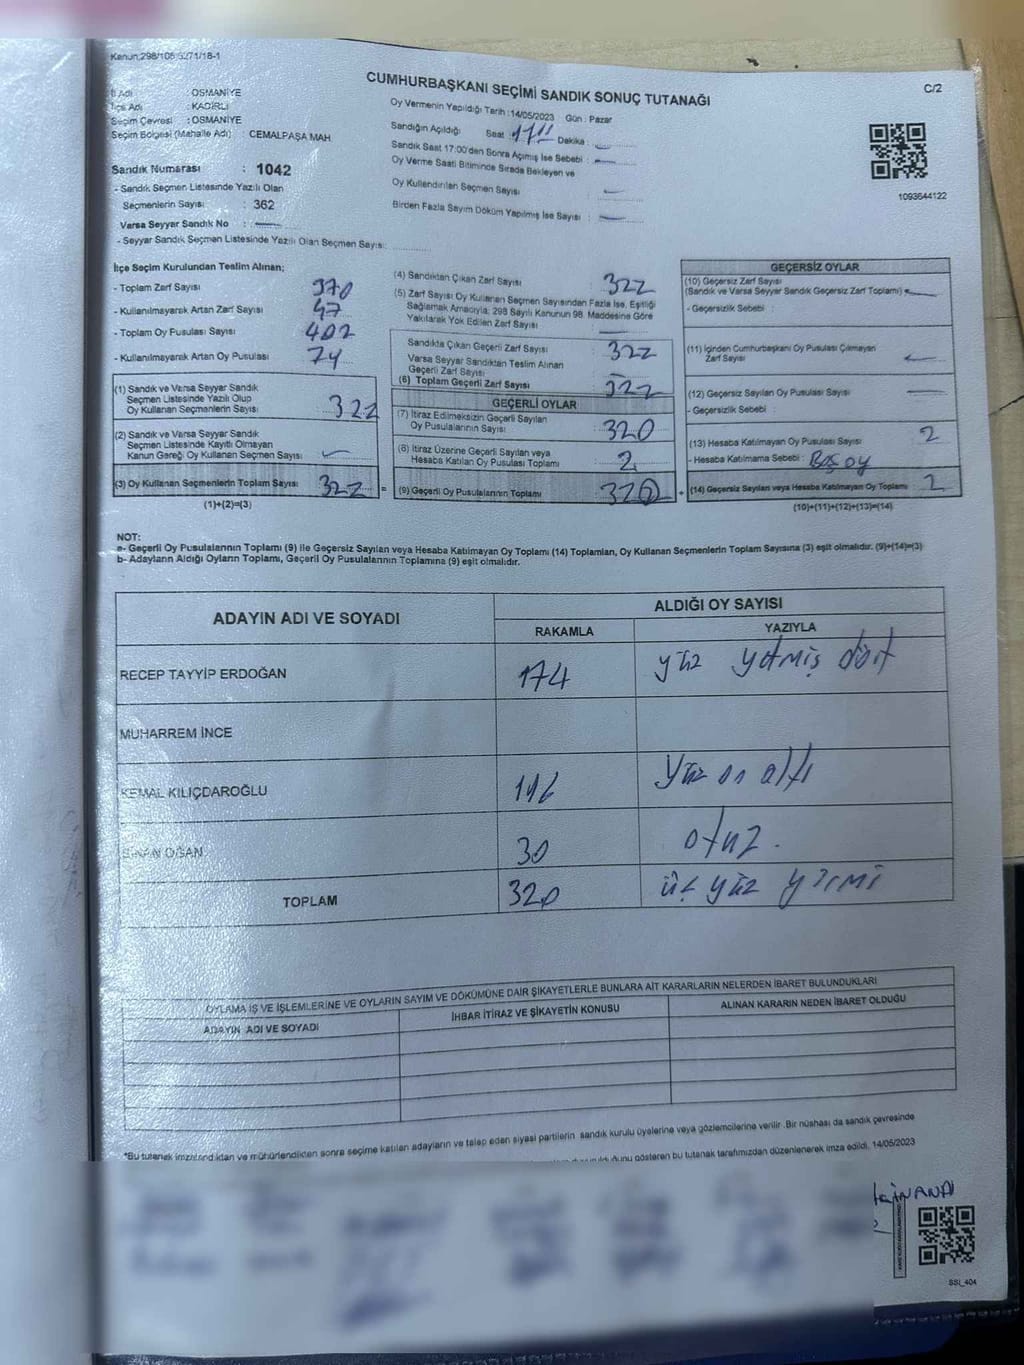 Kanun:298/105 5271/18-1
CUMHURBAŞKANI SEÇİMİ SANDIK SONUÇ TUTANAĞI
C/2
İl Adı : OSMANİYE
İlçe Adı : KADİRLİ
Seçim Çevresi : OSMANİYE
Seçim Bölgesi (Mahalle Adı) : CEMALPAŞA MAH
Oy Vermenin Yapıldığı Tarih :14/05/2023 Gün : Pazar
Sandığın Açıldığı Saat Dakika :
Sandık Saat 17:00'den Sonra Açımış İse Sebebi :
Oy Verme Saati Bitiminde Sırada Bekleyen ve
Oy Kullandırılan Seçmen Sayısı
Birden Fazla Sayım Döküm Yapılmış İse Sayısı :
1093644122
Sandık Numarası : 1042
- Sandık Seçmen Listesinde Yazılı Olan
Seçmenlerin Sayısı : 362
Varsa Seyyar Sandık No :
- Seyyar Sandık Seçmen Listesinde Yazılı Olan Seçmen Sayısı:
İlçe Seçim Kurulundan Teslim Alınan;
- Toplam Zarf Sayısı 370
- Kullanılmayarak Artan Zarf Sayısı 47
- Toplam Oy Pusulası Sayısı 402
- Kullanılmayarak Artan Oy Pusulası 74
(1) Sandık ve Varsa Seyyar Sandık
Seçmen Listesinde Yazılı Olup
Oy Kullanan Seçmenlerin Sayısı 322
(2) Sandık ve Varsa Seyyar Sandık
Seçmen Listesinde Kayıtlı Olmayan
Kanun Gereği Oy Kullanan Seçmen Sayısı
(3) Oy Kullanan Seçmenlerin Toplam Sayısı 322 =
(1)+(2)=(3)
(4) Sandıktan Çıkan Zarf Sayısı 322
(5) Zarf Sayısı Oy Kullanan Seçmen Sayısından Fazla İse, Eşitliği
Sağlamak Amacıyla; 298 Sayılı Kanunun 98. Maddesine Göre
Yakılarak Yok Edilen Zarf Sayısı
Sandıkta Çıkan Geçerli Zarf Sayısı 322
Varsa Seyyar Sandıktan Teslim Alınan
Geçerli Zarf Sayısı
(6) Toplam Geçerli Zarf Sayısı 322
GEÇERLİ OYLAR
(7) İtiraz Edilmeksizin Geçerli Sayılan
Oy Pusulalarının Sayısı 320
(8) İtiraz Üzerine Geçerli Sayılan veya
Hesaba Katılan Oy Pusulası Toplamı 2
(9) Geçerli Oy Pusulalarının Toplamı +
GEÇERSİZ OYLAR
(10) Geçersiz Zarf Sayısı
(Sandık ve Varsa Seyyar Sandık Geçersiz Zarf Toplamı)
- Geçersizlik Sebebi :
(11) İçinden Cumhurbaşkanı Oy Pusulası Çıkmayan
Zarf Sayısı
(12) Geçersiz Sayılan Oy Pusulası Sayısı
- Geçersizlik Sebebi :
(13) Hesaba Katılmayan Oy Pusulası Sayısı 2
- Hesaba Katılmama Sebebi : Boş oy
(14) Geçersiz Sayılan veya Hesaba Katılmayan Oy Toplamı 2
(10)+(11)+(12)+(13)=(14)
NOT:
a- Geçerli Oy Pusulalarının Toplamı (9) ile Geçersiz Sayılan veya Hesaba Katılmayan Oy Toplamı (14) Toplamları, Oy Kullanan Seçmenlerin Toplam Sayısına (3) eşit olmalıdır. (9)+(14)=(3)
b- Adayların Aldığı Oyların Toplamı, Geçerli Oy Pusulalarının Toplamına (9) eşit olmalıdır.
ADAYIN ADI VE SOYADI
ALDIĞI OY SAYISI
RAKAMLA
YAZIYLA
RECEP TAYYİP ERDOĞAN 174 yüz yetmiş dört
MUHARREM İNCE
KEMAL KILIÇDAROĞLU 116 yüz on altı
SİNAN OĞAN 30 otuz.
TOPLAM 320 üç yüz yirmi
OYLAMA İŞ VE İŞLEMLERİNE VE OYLARIN SAYIM VE DÖKÜMÜNE DAİR ŞİKAYETLERLE BUNLARA AİT KARARLARIN NELERDEN İBARET BULUNDUKLARI
ADAYIN ADI VE SOYADI
İHBAR İTİRAZ VE ŞİKAYETİN KONUSU
ALINAN KARARIN NEDEN İBARET OLDUĞU
*Bu tutanak imzalandıktan ve mühürlendikten sonra seçime katılan adayların ve talep eden siyasi partilerin sandık kurulu üyelerine veya gözlemcilerine verilir .Bir nüshası da sandık çevresinde
gösteren bu tutanak tarafımızdan düzenlenerek imza edildi. 14/05/2023
SSI_404